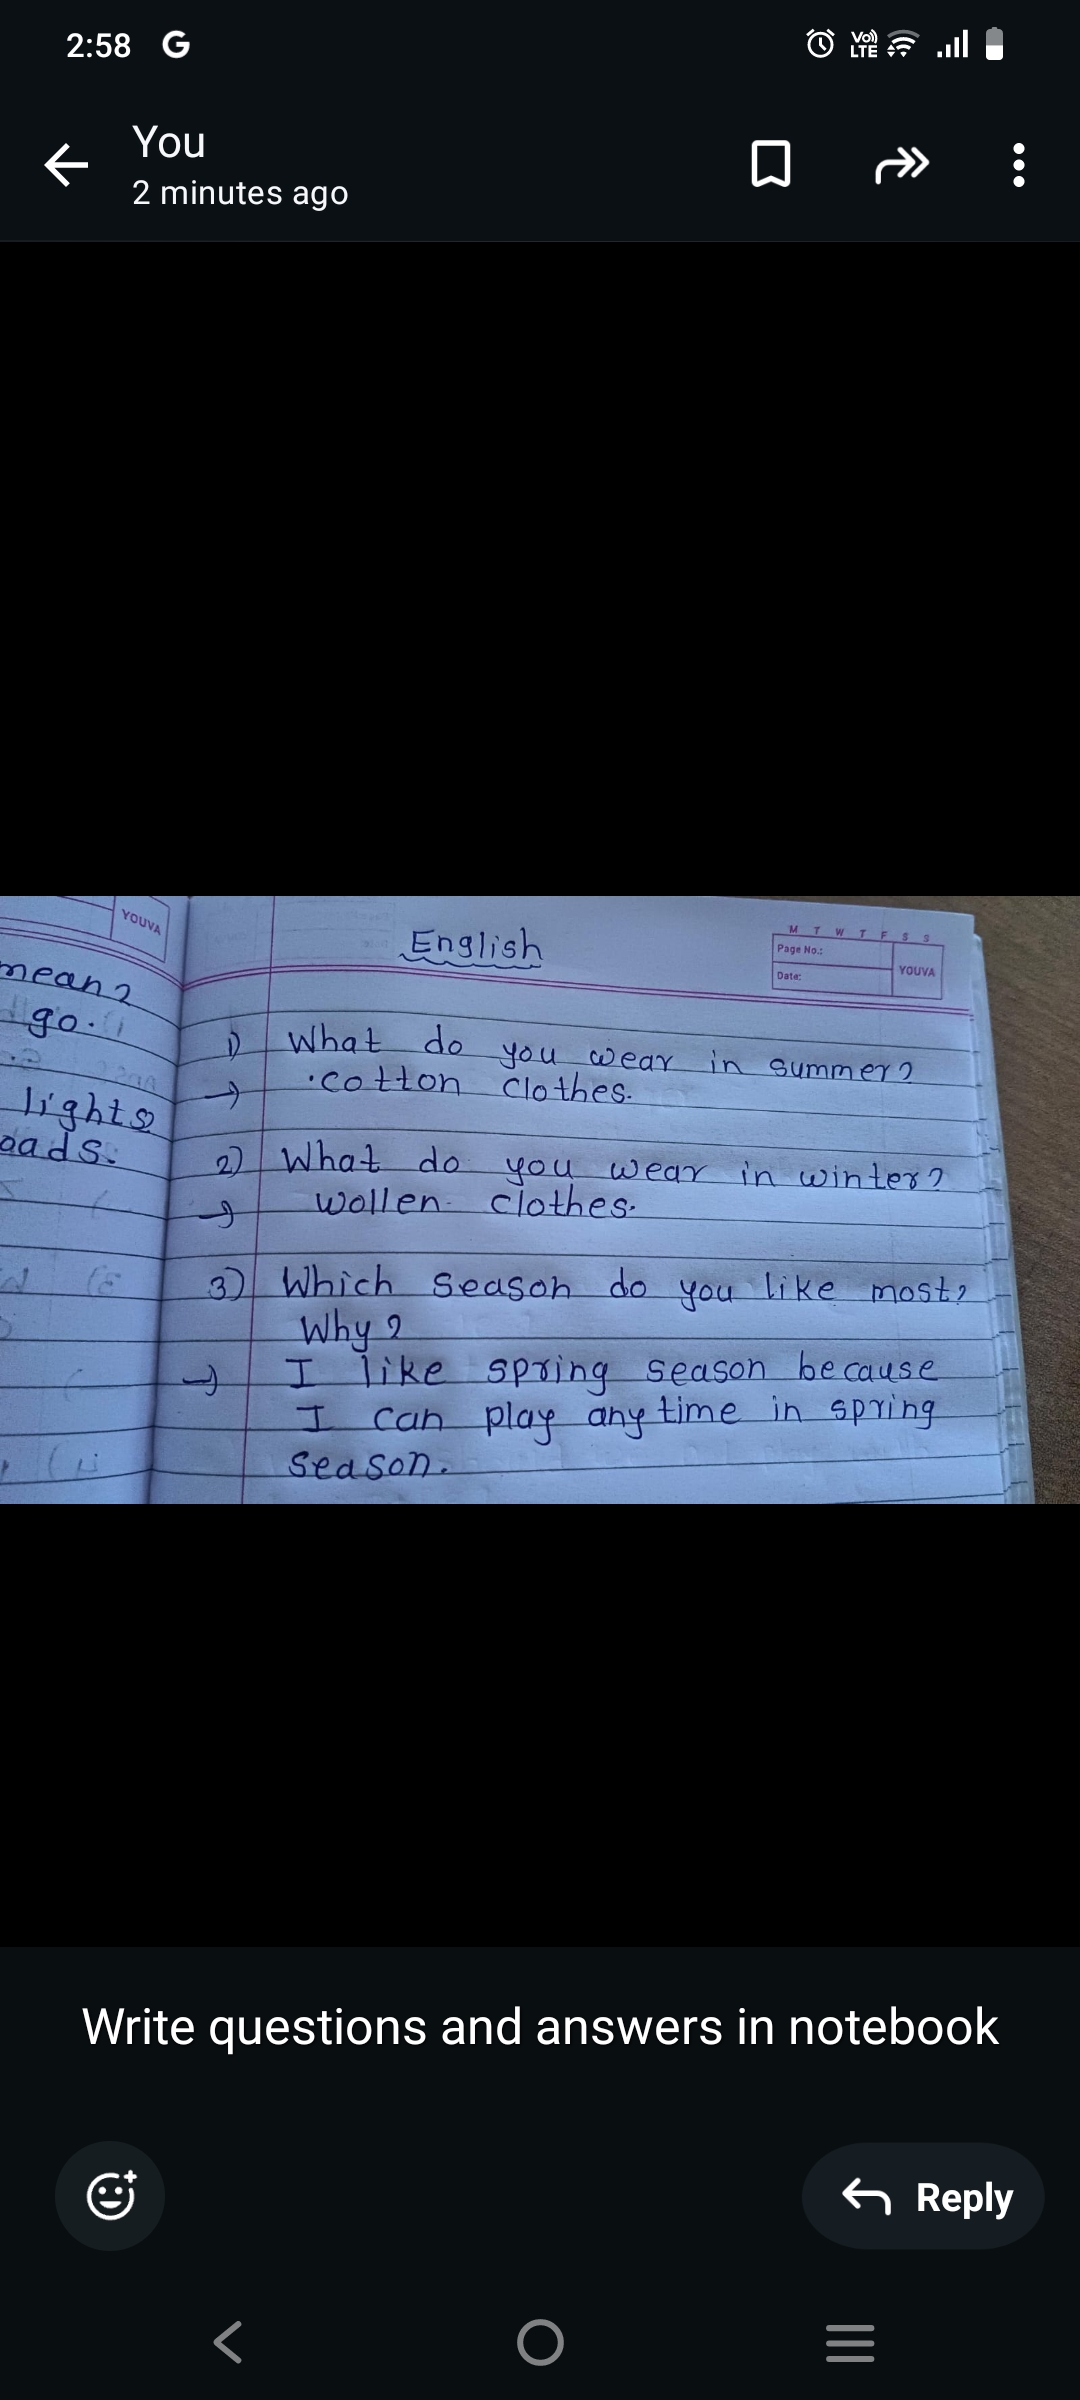 2:58 G
Vo))
LTE
You
2 minutes ago
YOUVA
mean?
go.
lights
oads.
English
M T W T F S S
Page No.:
Date:
YOUVA
1) What do you wear in summer?
→ cotton clothes.
2) What do you wear in winter?
→ wollen clothes.
3) Which season do you like most?
Why?
→ I like spring season because
I can play any time in spring
season.
Write questions and answers in notebook
Reply